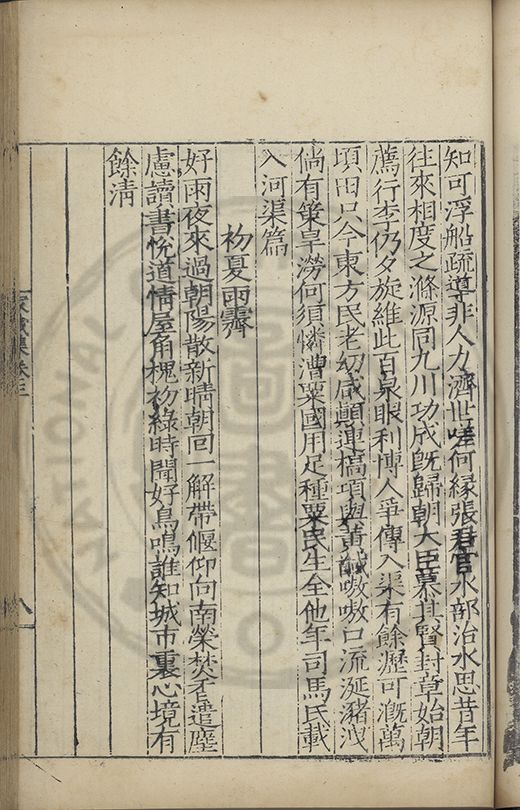 知可浮船疏導非人力濟世嗟何緣張君官水部治水思昔年
往來相度之滌源同九川功成旣歸朝大臣慕其賢封章始朝
薦行李仍夕旋維此百泉眼利博人爭傳入渠有餘瀝可漑萬
頃田只今東方民老幼咸顚連槁項與黃馘嗷嗷口流涎豬洩
倘有策旱澇何須憐漕粟國用足種粟民生全他年司馬氏載
入河渠篇
初夏雨霽
好雨夜來過朝陽散新晴朝回一解帶偃仰向南榮焚香遣塵
慮讀書悅道情屋角槐初綠時聞好鳥鳴誰知城市裏心境有
餘淸
集卷三
八